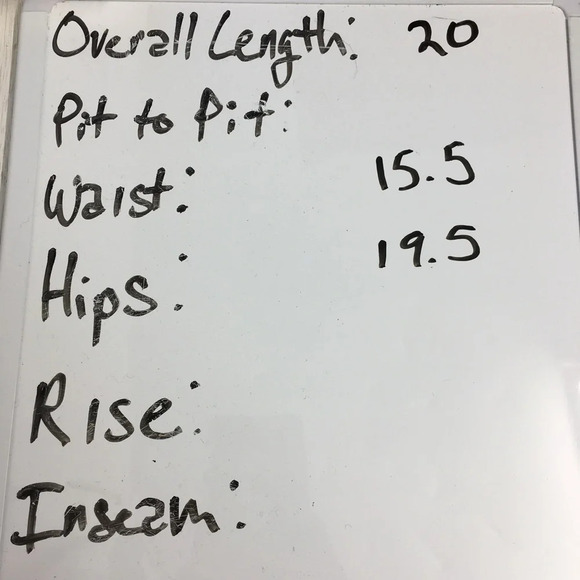 Overall Length: 20
Pit to Pit:
Waist: 15.5
Hips: 19.5
Rise:
Inseam: